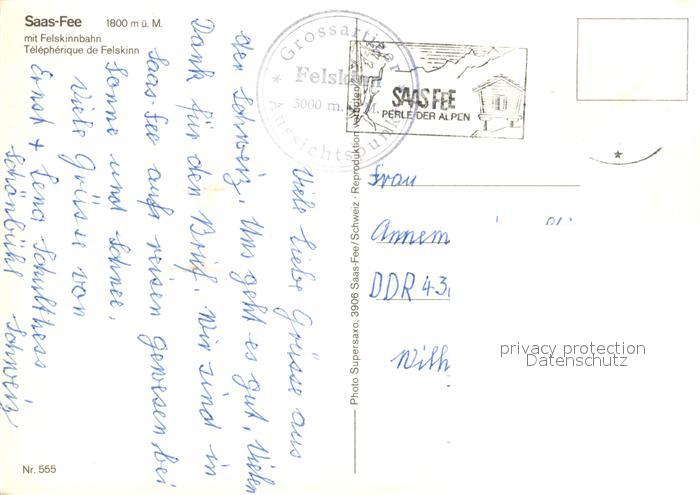 Saas-Fee 1800 m ü. M.
mit Felskinnbahn
Téléphérique de Felskinn
Grossartiger
Felskinn
3000 m. ü. M.
Aussichtspunkt
SAAS FEE
PERLE DER ALPEN
Viele liebe Grüsse aus
der Schweiz. Uns geht es gut, Vielen
Dank für den Brief. Wir sind in
Saas-Fee auf reisen gewesen, bei
Sonne und Schnee.
Viele Grüsse von
Ernst + Lena Schulthess
Schönbühl Schweiz
Photo Supersaxo, 3906 Saas-Fee/Schweiz · Reproduktion verboten
Frau
Annem
DDR 43
Wilh
privacy protection
Datenschutz
Nr. 555